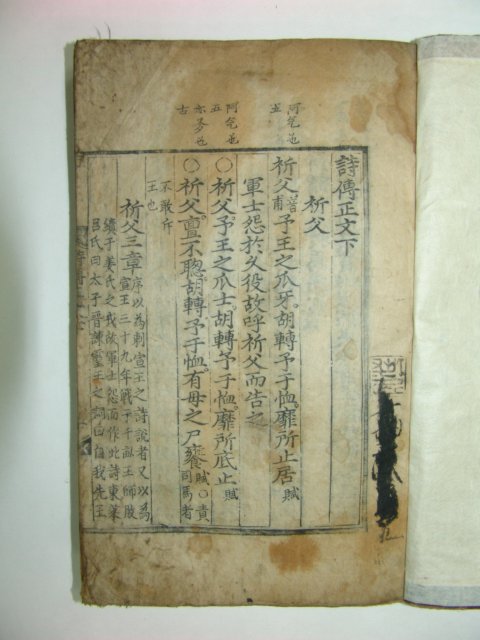 詩傳正文下
祈父
祈父予王之爪牙胡轉予于恤靡所止居賦
軍士怨於久役故呼祈父而告之
○祈父予王之爪士胡轉予于恤靡所底止賦
○祈父亶不聰胡轉予于恤有母之尸饔賦○責司馬者
不敢斥王也
祈父三章序以為刺宣王之詩說者又以為
宣王三十九年戰于千畝王師敗
績于姜氏之戎故軍士怨而作此詩東萊
呂氏曰太子晉諫靈王之詞曰自我先王